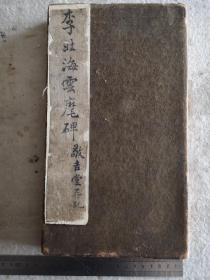 李北海雲麾碑
敬吉堂